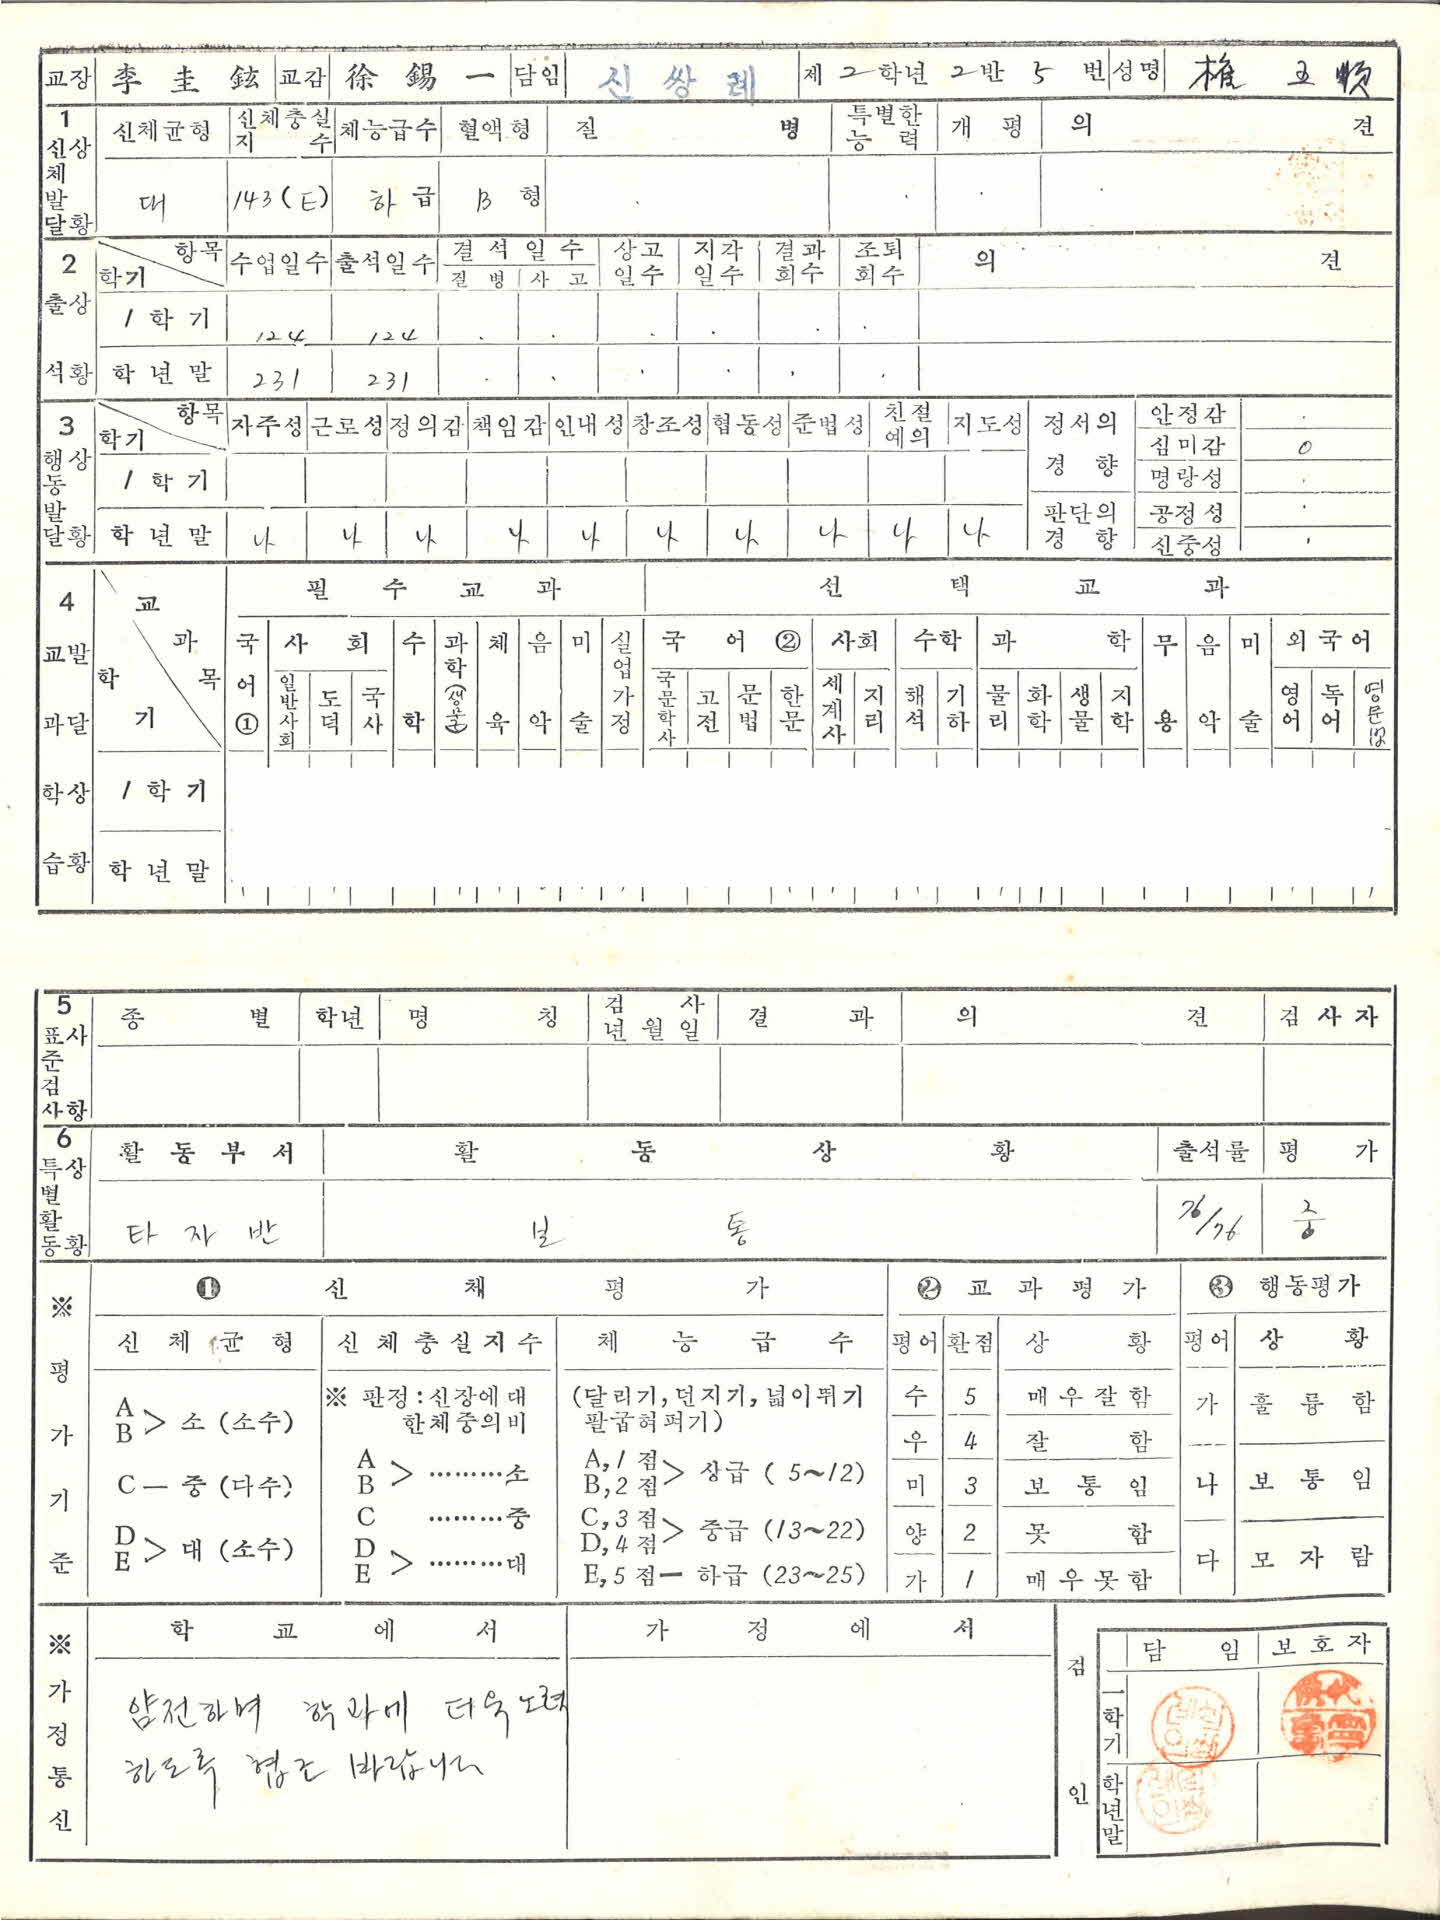 교장 李圭鉉 교감 徐錫一 담임 신쌍례 제 2 학년 2 반 5 번 성명 權玉順
1 신체발달상황 신체균형 신체충실지수 체능급수 혈액형 질병 특별한능력 개평 의견
대 143(E) 하급 B형
2 출석상황 항목 학기 수업일수 출석일수 결석일수 질병 사고 상고일수 지각일수 결과회수 조퇴회수 의견
1학기 124 124
학년말 231 231
3 행동발달상황 항목 학기 자주성 근로성 정의감 책임감 인내성 창조성 협동성 준법성 친절예의 지도성 정서의 경향 안정감
심미감 0
1학기 명랑성
학년말 나 나 나 나 나 나 나 나 나 나 판단의 경향 공정성
신중성
4 교과학습발달상황 교과목 학기 필수교과 선택교과
국어① 사회 수학 과학(생물) 체육 음악 미술 실업가정 국어② 사회 수학 과학 무용 음악 미술 외국어
일반사회 도덕 국사 국문학사 고전 문법 한문 세계사 지리 해석 기하 물리 화학 생물 지학 영어 독어
1학기
학년말
5 표준검사사항 종별 학년 명칭 검사년월일 결과 의견 검사자
6 특별활동상황 활동부서 활동상황 출석률 평가
타자반 보통 76/76 중
※ 평가기준 ❶ 신체평가 ❷ 교과평가 ❸ 행동평가
신체균형 신체충실지수 체능급수 평어 환점 상황 평어 상황
A B > 소 (소수) ※ 판정:신장에대한체중의비 (달리기, 던지기, 넓이뛰기 팔굽혀펴기) 수 5 매우잘함 가 훌륭함
A B > ………소 A, 1점 B, 2점 > 상급 (5~12) 우 4 잘함
C — 중 (다수) C ………중 C, 3점 D, 4점 > 중급 (13~22) 미 3 보통임 나 보통임
D E > 대 (소수) D E > ………대 양 2 못함 다 모자람
E, 5점 — 하급 (23~25) 가 1 매우못함
※ 가정통신 학교에서 가정에서 검인 담임 보호자
얌전하며 학과에 더욱 노력 一학기
하도록 협조 바랍니다 학년말